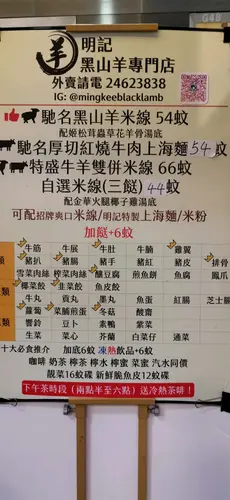 G48
羊 明記
黑山羊專門店
外賣請電 24623838
IG: @mingkeeblacklamb
馳名黑山羊米線 54蚊
配姬松茸蟲草花羊骨湯底
馳名厚切紅燒牛肉上海麵 54蚊
特盛牛羊雙併米線 66蚊
自選米線(三餸) 44蚊
配金華火腿椰子雞湯底
可配招牌爽口米線/明記特製上海麵/米粉
加餸+6蚊
牛筋 牛展 牛肚 牛腩 雞翼
豬扒 豬腸 豬手 豬紅 豬皮 排骨
雪菜肉絲 榨菜肉絲 釀豆腐 煎魚餅 魚腐 鳳爪
椰菜餃 韭菜餃 魚皮餃
牛丸 貢丸 墨丸 魚蛋 紅腸 芝士腸
蘿蔔 菜脯煎蛋 冬菇 酸齋
響鈴 豆卜 素鴨 紫菜
生菜 菜心 芥蘭 白菜仔 通菜
十大必食推介 加底6蚊 凍熱飲品+6蚊
咖啡 奶茶 檸茶 檸水 檸蜜 菜蜜 汽水同價
靚菜16蚊碟 新鮮脆魚皮12蚊碟
下午茶時段(兩點半至六點)送冷熱茶啡!